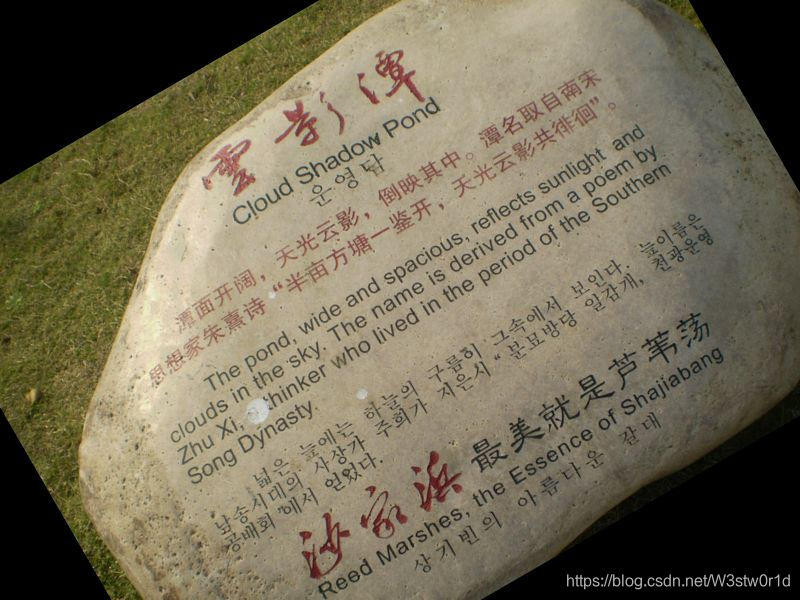 雲影潭
Cloud Shadow Pond
운영담
潭面开阔，天光云影，倒映其中。潭名取自南宋
思想家朱熹诗“半亩方塘一鉴开，天光云影共徘徊”。
The pond, wide and spacious, reflects sunlight and
clouds in the sky. The name is derived from a poem by
Zhu Xi, thinker who lived in the period of the Southern
Song Dynasty.
넓은 늪에는 하늘의 구름히 그속에서 보인다, 늪이름은
남송시대의 사상가 주회가 지은시 “분묘방당 일감개, 천광운영
공배회”에서 얻었다.
沙家浜 最美就是芦苇荡
Reed Marshes, the Essence of Shajiabang
상기빈의 아름다운 갈대
https://blog.csdn.net/W3stw0r1d